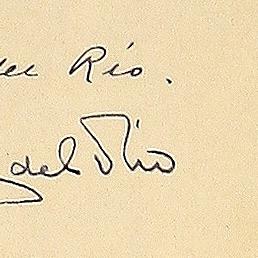 del Río.
del Río